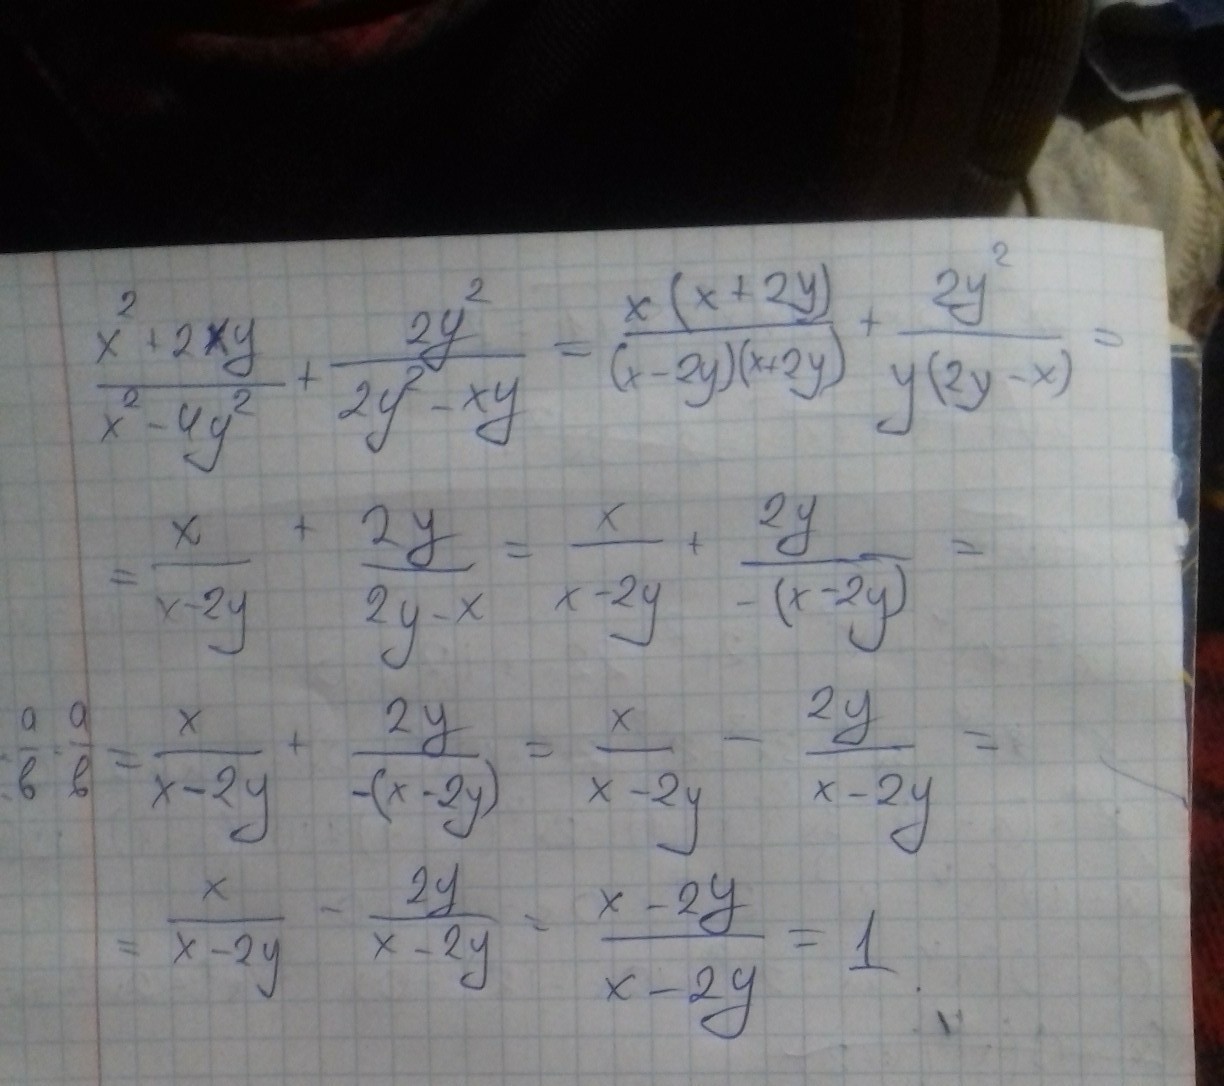 (x² + 2xy)/(x² - 4y²) + 2y²/(2y² - xy) = x(x + 2y)/((x - 2y)(x + 2y)) + 2y²/(y(2y - x)) =
= x/(x - 2y) + 2y/(2y - x) = x/(x - 2y) + 2y/(-(x - 2y)) =
a/b a/b = x/(x - 2y) + 2y/(-(x - 2y)) = x/(x - 2y) - 2y/(x - 2y) =
= x/(x - 2y) - 2y/(x - 2y) = (x - 2y)/(x - 2y) = 1